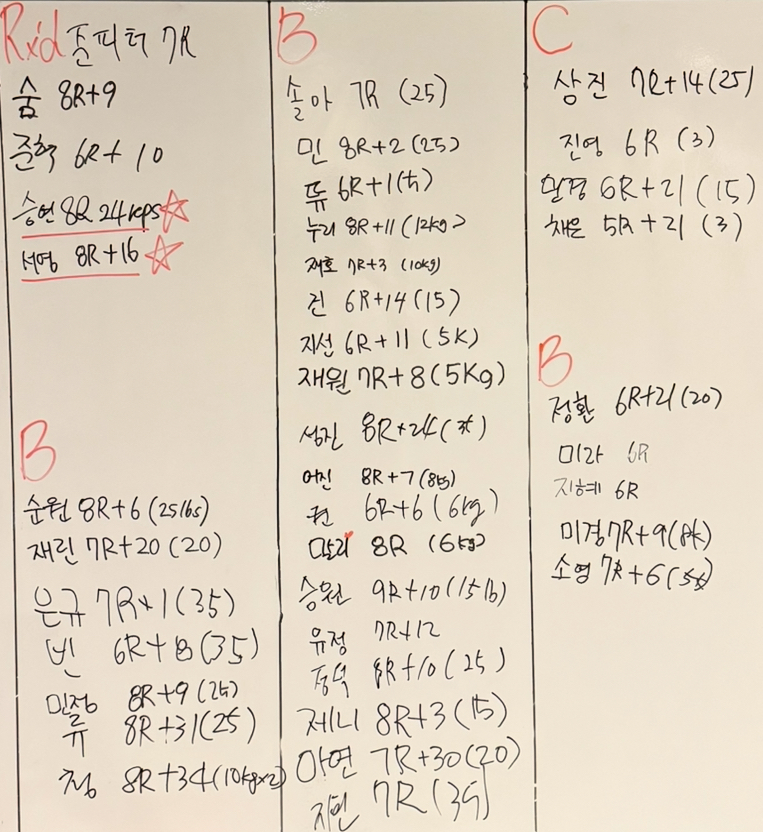 Rx'd 준피터 7R
숨 8R+9
준혁 6R+10
승연 8R 24reps
서영 8R+16
B
순원 8R+6 (25lbs)
재린 7R+20 (20)
은규 7R+1 (35)
빈 6R+18 (35)
민정 8R+9 (25)
류 8R+31 (25)
청 8R+34 (10kg×2)
B
솔아 7R (25)
민 8R+2 (25)
뜌 6R+1
누리 8R+11 (12kg)
재호 7R+3 (10kg)
진 6R+14 (15)
지선 6R+11 (5K)
재원 7R+8 (5Kg)
성진 8R+24
어진 8R+7 (8kg)
권 6R+6 (6kg)
8R (6kg)
승원 9R+10 (15lb)
유정 7R+12
정덕 8R+10 (25)
제니 8R+3 (15)
아연 7R+30 (20)
지현 7R (35)
C
상진 7R+14 (25)
진영 6R (3)
민경 6R+21 (15)
채은 5R+21 (3)
B
정환 6R+21 (20)
미라 6R
지혜 6R
미경 7R+9 (8k)
소영 7R+6